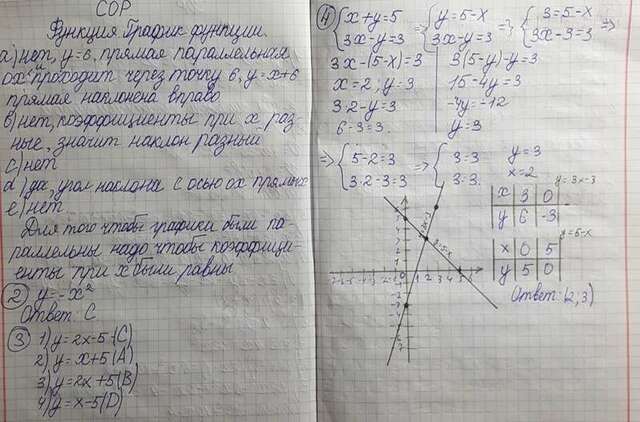 СОР
Функция График функции.
а) нет, у=6, прямая параллельная
ох и проходит через точку 6, у=х+6
прямая наклонена вправо
в) нет, коэффициенты при х раз
ные, значит наклон разный
с) нет
d) да, угол наклона с осью ох прямых
е) нет
Для того чтобы графики были па-
раллельны надо чтобы коэффици-
енты при х были равны
2 у=-х²
Ответ: С
3 1) у=2х-5 (С)
2) у=х+5 (А)
3) у=2х+5 (В)
4) у=х-5 (D)
4 {х+у=5 => {у=5-х => {3=5-х =>
3х-у=3 3х-у=3 3х-3=3
3х-(5-х)=3 3(5-у)-у=3
х=2, у=3 15-4у=3
3·2-у=3 -4у=-12
6-3=3 у=3
=> {5-2=3 => {3=3 у=3
3·2-3=3 3=3. х=2
у=3х-3
х 3 0
у 6 -3
у=5-х
х 0 5
у 5 0
у=5-х
Ответ: (2;3)